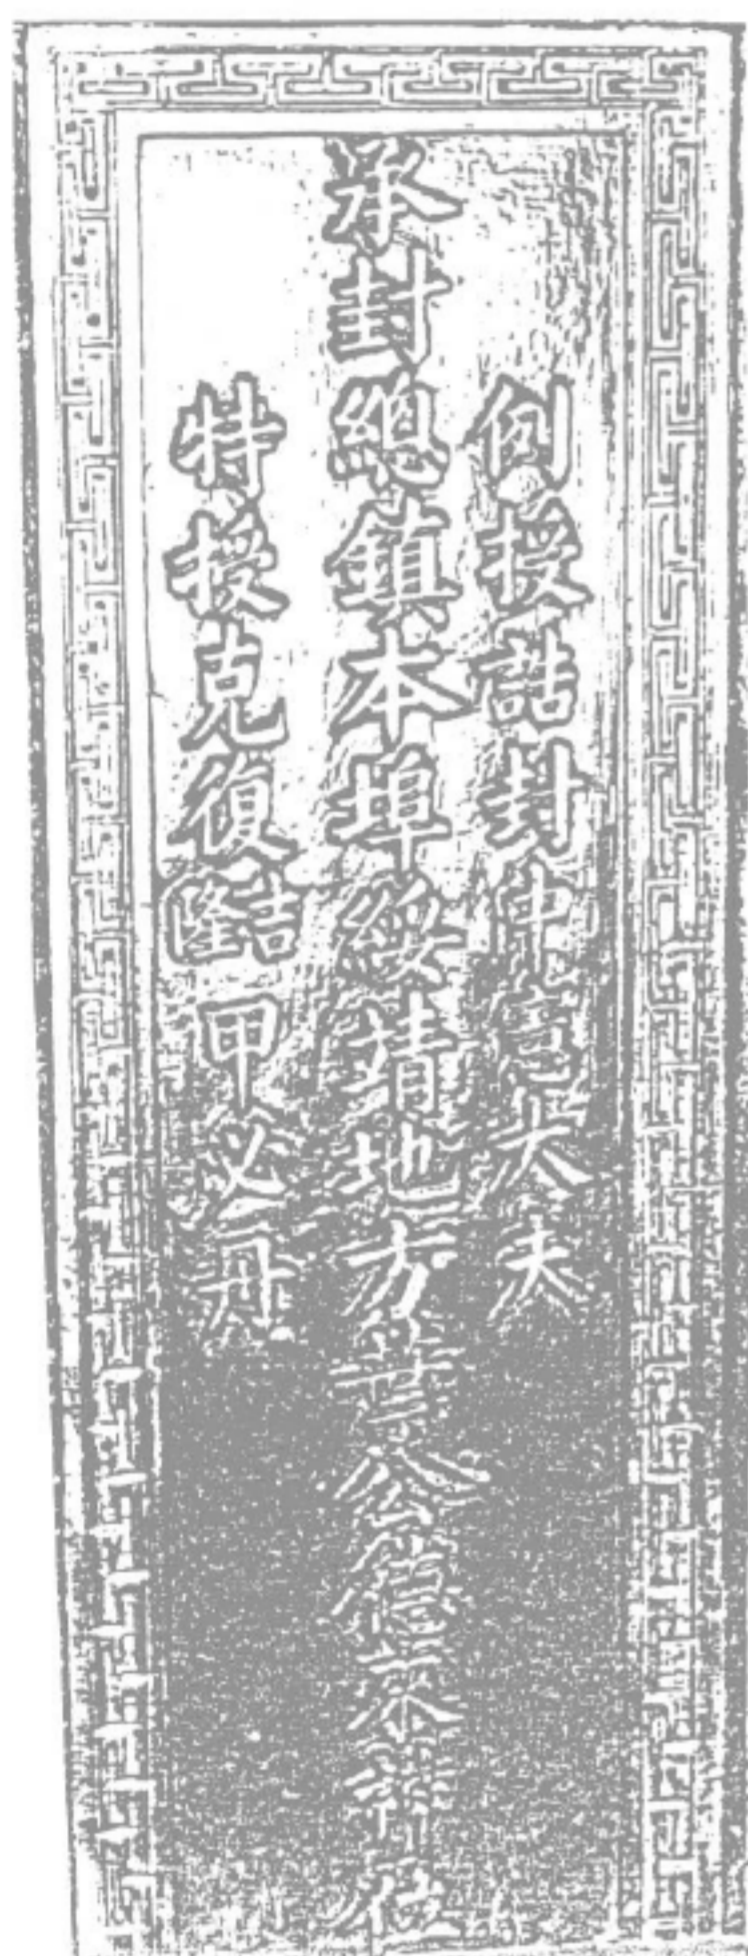 例授誥封中憲大夫
承封總鎮本埠綏靖地方葉公德來神位
特授克復吉隆甲必丹